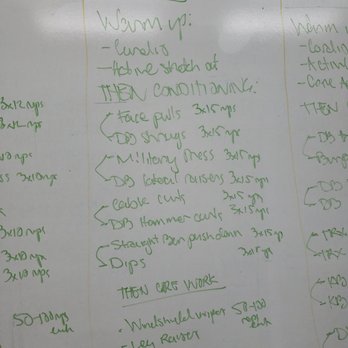 3x12 reps
3x12 reps
3x10 reps
3x10 reps
3x10 reps
3x10 reps
50-100 reps
each
Warm up:
- Cardio
- Active stretch
THEN CONDITIONING:
Face pulls 3x15 reps
DB shrugs 3x15 reps
Military Press 3x15 reps
DB lateral raisers 3x15 reps
cable curls 3x15 reps
DB Hammer curls 3x15 reps
Straight Bar pushdown 3x15 reps
Dips 3x15 reps
THEN CORE WORK
• Windshield wiper 50-100
reps
each
• Leg Raises
Warm u
- Cardio
- Active
- Core A
THEN
DB
DB
DB
TRX